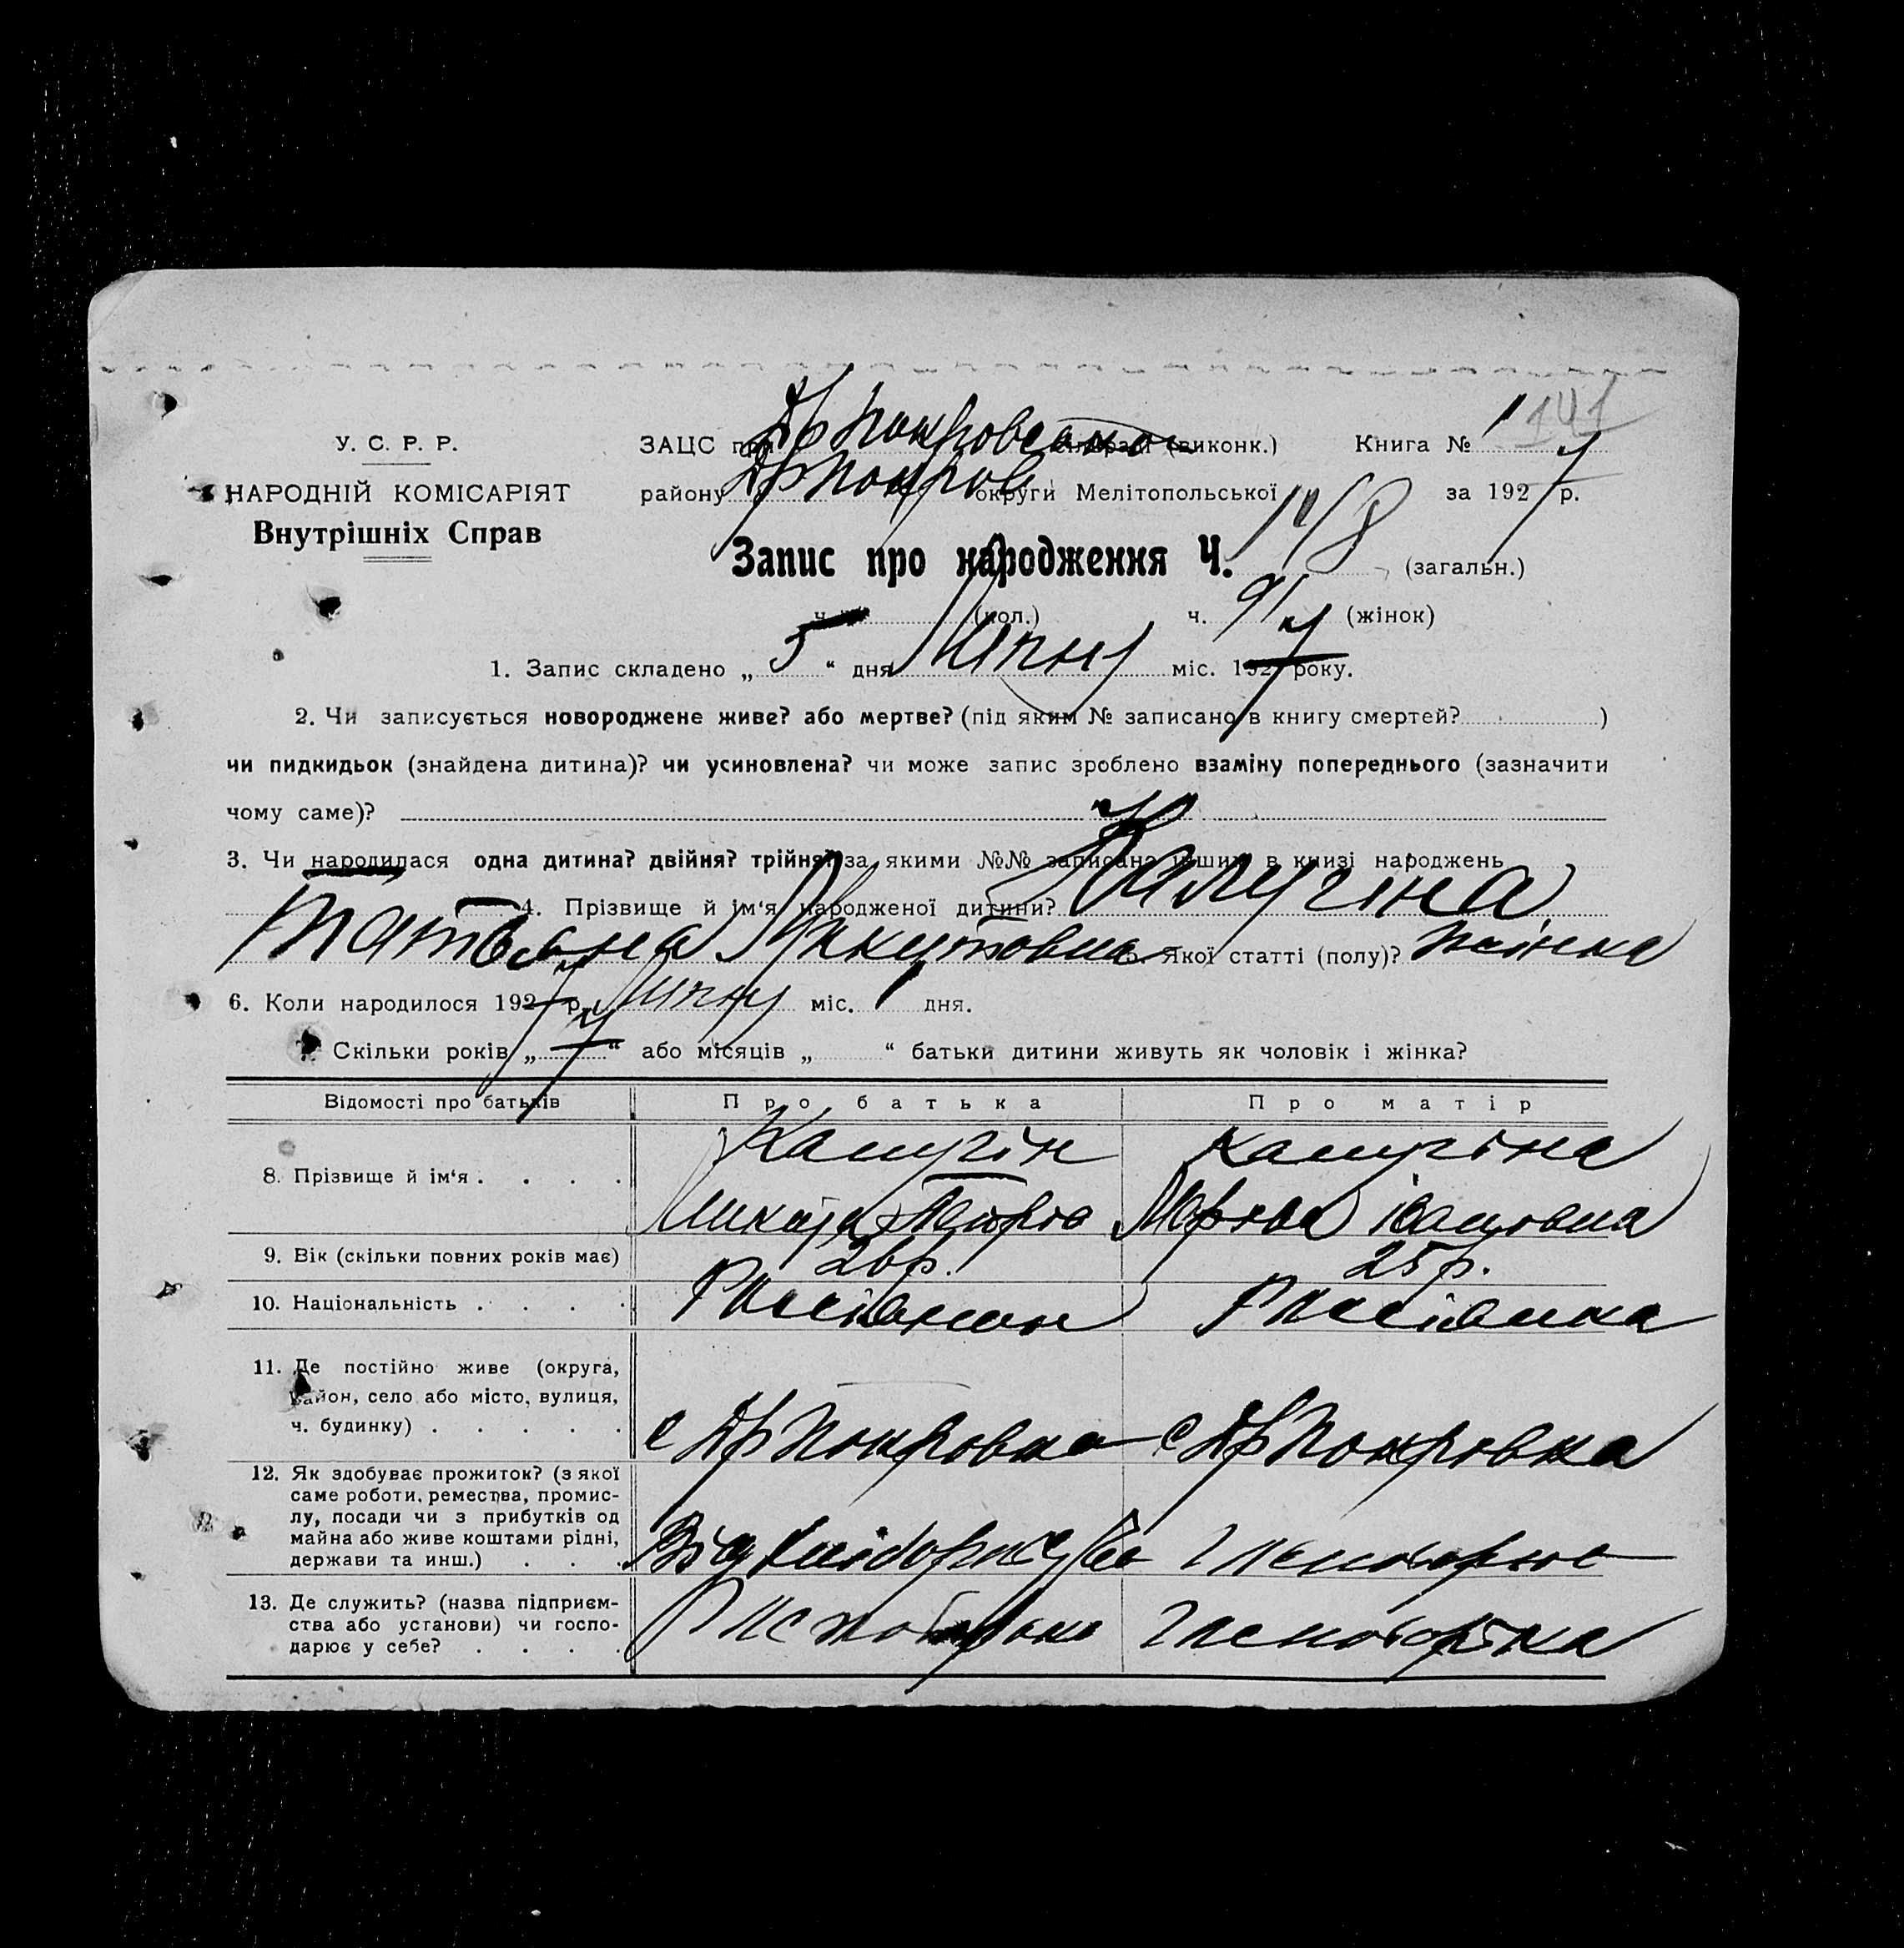 У. С. Р. Р.
НАРОДНІЙ КОМІСАРІЯТ
Внутрішніх Справ
ЗАЦС при (виконк.) Книга № 1 141
району округи Мелітопольської за 1927 р.
Запис про народження Ч. (загальн.)
ч. (чол.) ч. (жінок)
1. Запис складено „ 5 “ дня Липня міс. 1927 року.
2. Чи записується новороджене живе? або мертве? (під яким № записано в книгу смертей? )
чи пидкидьок (знайдена дитина)? чи усиновлена? чи може запис зроблено взаміну попереднього (зазначити
чому саме)?
3. Чи народилася одна дитина? двійня? трійня? за якими №№ записано инших в книзі народжень
4. Прізвище й ім‘я народженої дитини? Калугіна
Татьяна Микитовна 5. Якої статті (полу)? жінка
6. Коли народилося 1927 р. Липня міс. 1 дня.
Скільки років „ 7 “ або місяців „ “ батьки дитини живуть як чоловік і жінка?
Відомості про батьків Про батька Про матір
8. Прізвище й ім‘я . . . . Калугін Калугіна
Микита Марія Івановна
9. Вік (скільки повних років має) 26 р. 25 р.
10. Національність . . . . Росіянин Росіянка
11. Де постійно живе (округа,
район, село або місто, вулиця,
ч. будинку) . . . . . с Покровка с Покровка
12. Як здобуває прожиток? (з якої
саме роботи, ремества, промис-
лу, посади чи з прибутків од
майна або живе коштами рідні,
держави та инш.) . . . Від
13. Де служить? (назва підприєм-
ства або установи) чи госпо-
дарює у себе? . . . .